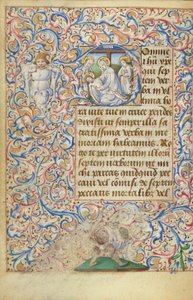 Domine
ihu xpi
qui sep
tem ver
ba in ul
tima ho
ra vite tue in cruce penden
s dixisti ut semper illa sa
cratissima verba in me
moriam habeamus Ro
go te per virtutem illorum
septem verborum ut
parcas quidquid pec
cavi vel comisi de septem
peccatis mortalibus vel